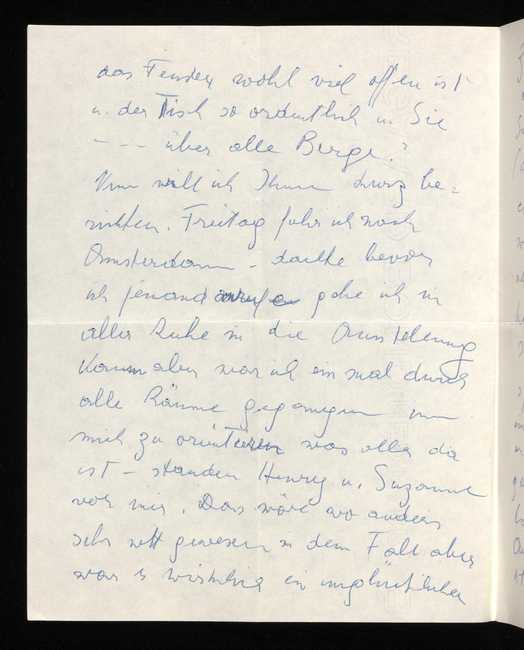 das Fenster wohl viel offen ist
u. der Tisch so ordentlich u. Sie
--- über alle Berge?
Nun will ich Ihnen kurz be=
richten. Freitag fuhr ich nach
Amsterdam - dachte bevor
ich jemand anrufe gehe ich in
aller Ruhe in die Ausstellung
Kaum aber war ich einmal durch
alle Räume gegangen um
mich zu orientieren was alles da
ist - standen Henry u. Suzanne
vor mir. Das wäre wo anders
sehr nett gewesen in dem Fall aber
war es wirklich ein unglücklicher